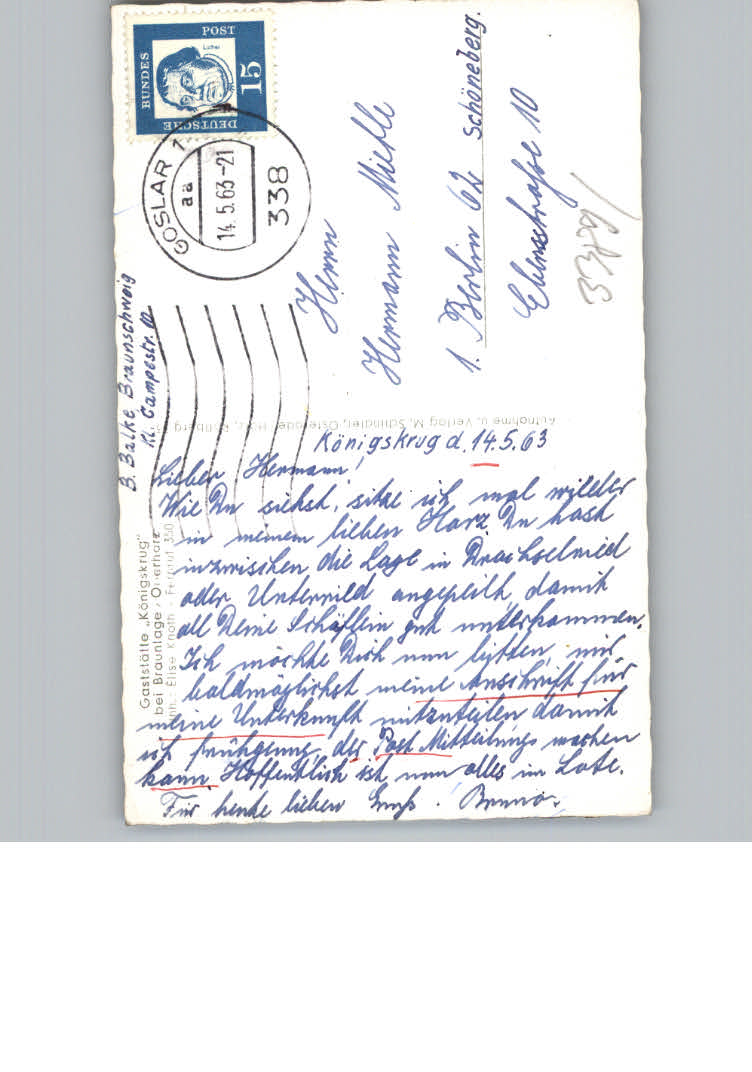 DEUTSCHE
BUNDES
POST
15
Luther
GOSLAR 1
aa
14.5.63-21
338
B. Balke, Braunschweig
Kl. Campestr. 10
Herrn
Hermann Miehle
1. Berlin 62 Schöneberg.
Ebersstraße 10
Aufnahme u. Verlag M. Schindler, Osterode/Harz,
Gaststätte „Königskrug"
bei Braunlage / Oberharz
Inh.: Elise Knoth - Fernruf 350
Königskrug d. 14.5.63
Lieber Hermann!
Wie Du siehst, sitze ich mal wieder
in meinem lieben Harz Du hast
inzwischen die Lage in Drachselsried
oder Unterried angepeilt damit
all Deine Schäflein gut unterkommen.
Ich möchte Dich nun bitten, mir
baldmöglichst meine Anschrift für
meine Unterkunft mitzuteilen damit
ich früh genug der Post Mitteilung machen
kann. Hoffentlich ist nun alles im Lote.
Für heute lieben Gruß! Bruno.